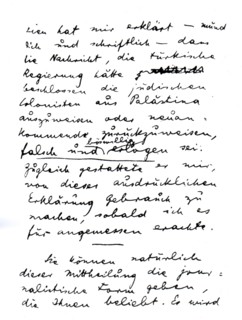 lien hat mir erklärt — münd
lich und schriftlich — dass
die Nachricht, die türkische
Regierung hätte
beschlossen die jüdischen
Colonisten aus Palästina
auszuweisen oder neuan-
kommende, zurückzuweisen,
falsch und erlogen sei.
Zugleich gestattete er mir,
von dieser ausdrücklichen
Erklärung Gebrauch zu
machen, sobald ich es
für angemessen erachte.
Sie können natürlich
dieser Mittheilung die jour-
nalistische Form geben,
die Ihnen beliebt. Es wird